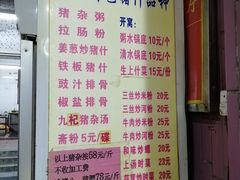 猪杂粥
拉肠粉
姜葱炒猪什
铁板猪什
豉汁排骨
椒盐排骨
九杞猪杂汤
斋粉5元/碟
以上猪杂按58元/斤
不收加工费
开窝:
粥水锅底10元/个
清水锅底10元/个
生上什菜15元/份
三丝炒米粉 20元
三丝炒河粉 20元
牛肉炒米粉 25元
牛肉炒河粉 25元
和味炒螺 20元
上汤时菜 23元